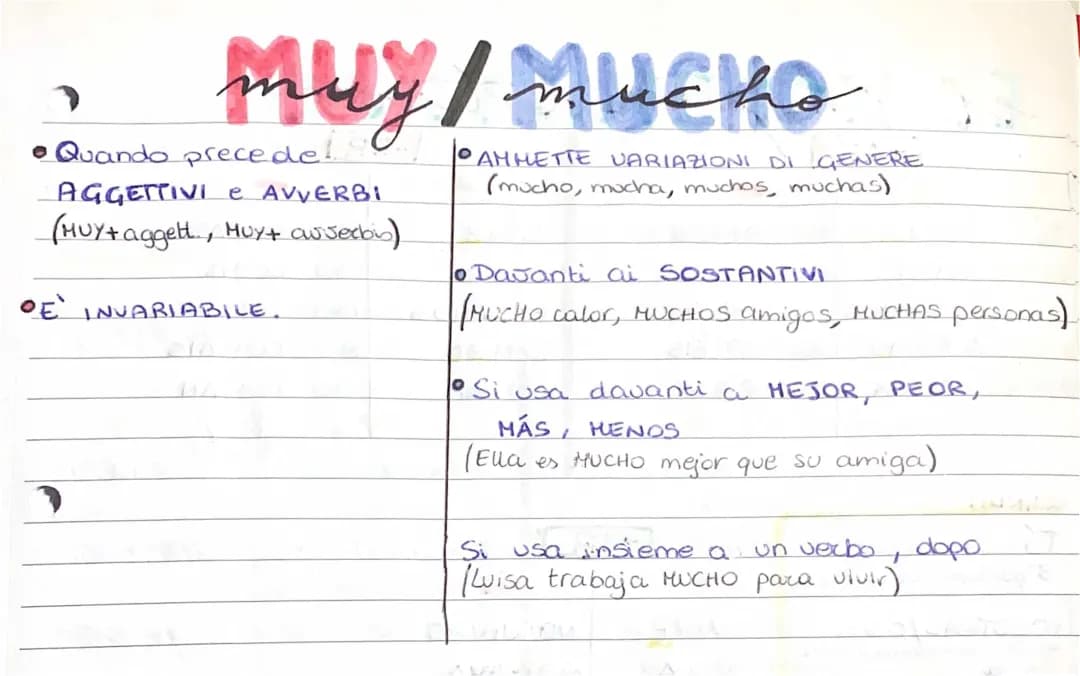 MUY / MUCHO
muy / mucho
• Quando precede:
AGGETTIVI e AVVERBI
(MUY+aggett., MUY+ avverbio)
• E' INVARIABILE.
• AMMETTE VARIAZIONI DI GENERE
(mucho, mucha, muchos, muchas)
• Davanti ai SOSTANTIVI
(MUCHO calor, MUCHOS amigos, MUCHAS personas)
• Si usa davanti a MEJOR, PEOR,
MÁS, MENOS
(Ella es MUCHO mejor que su amiga)
Si usa insieme a un verbo, dopo
(Luisa trabaja MUCHO para vivir)